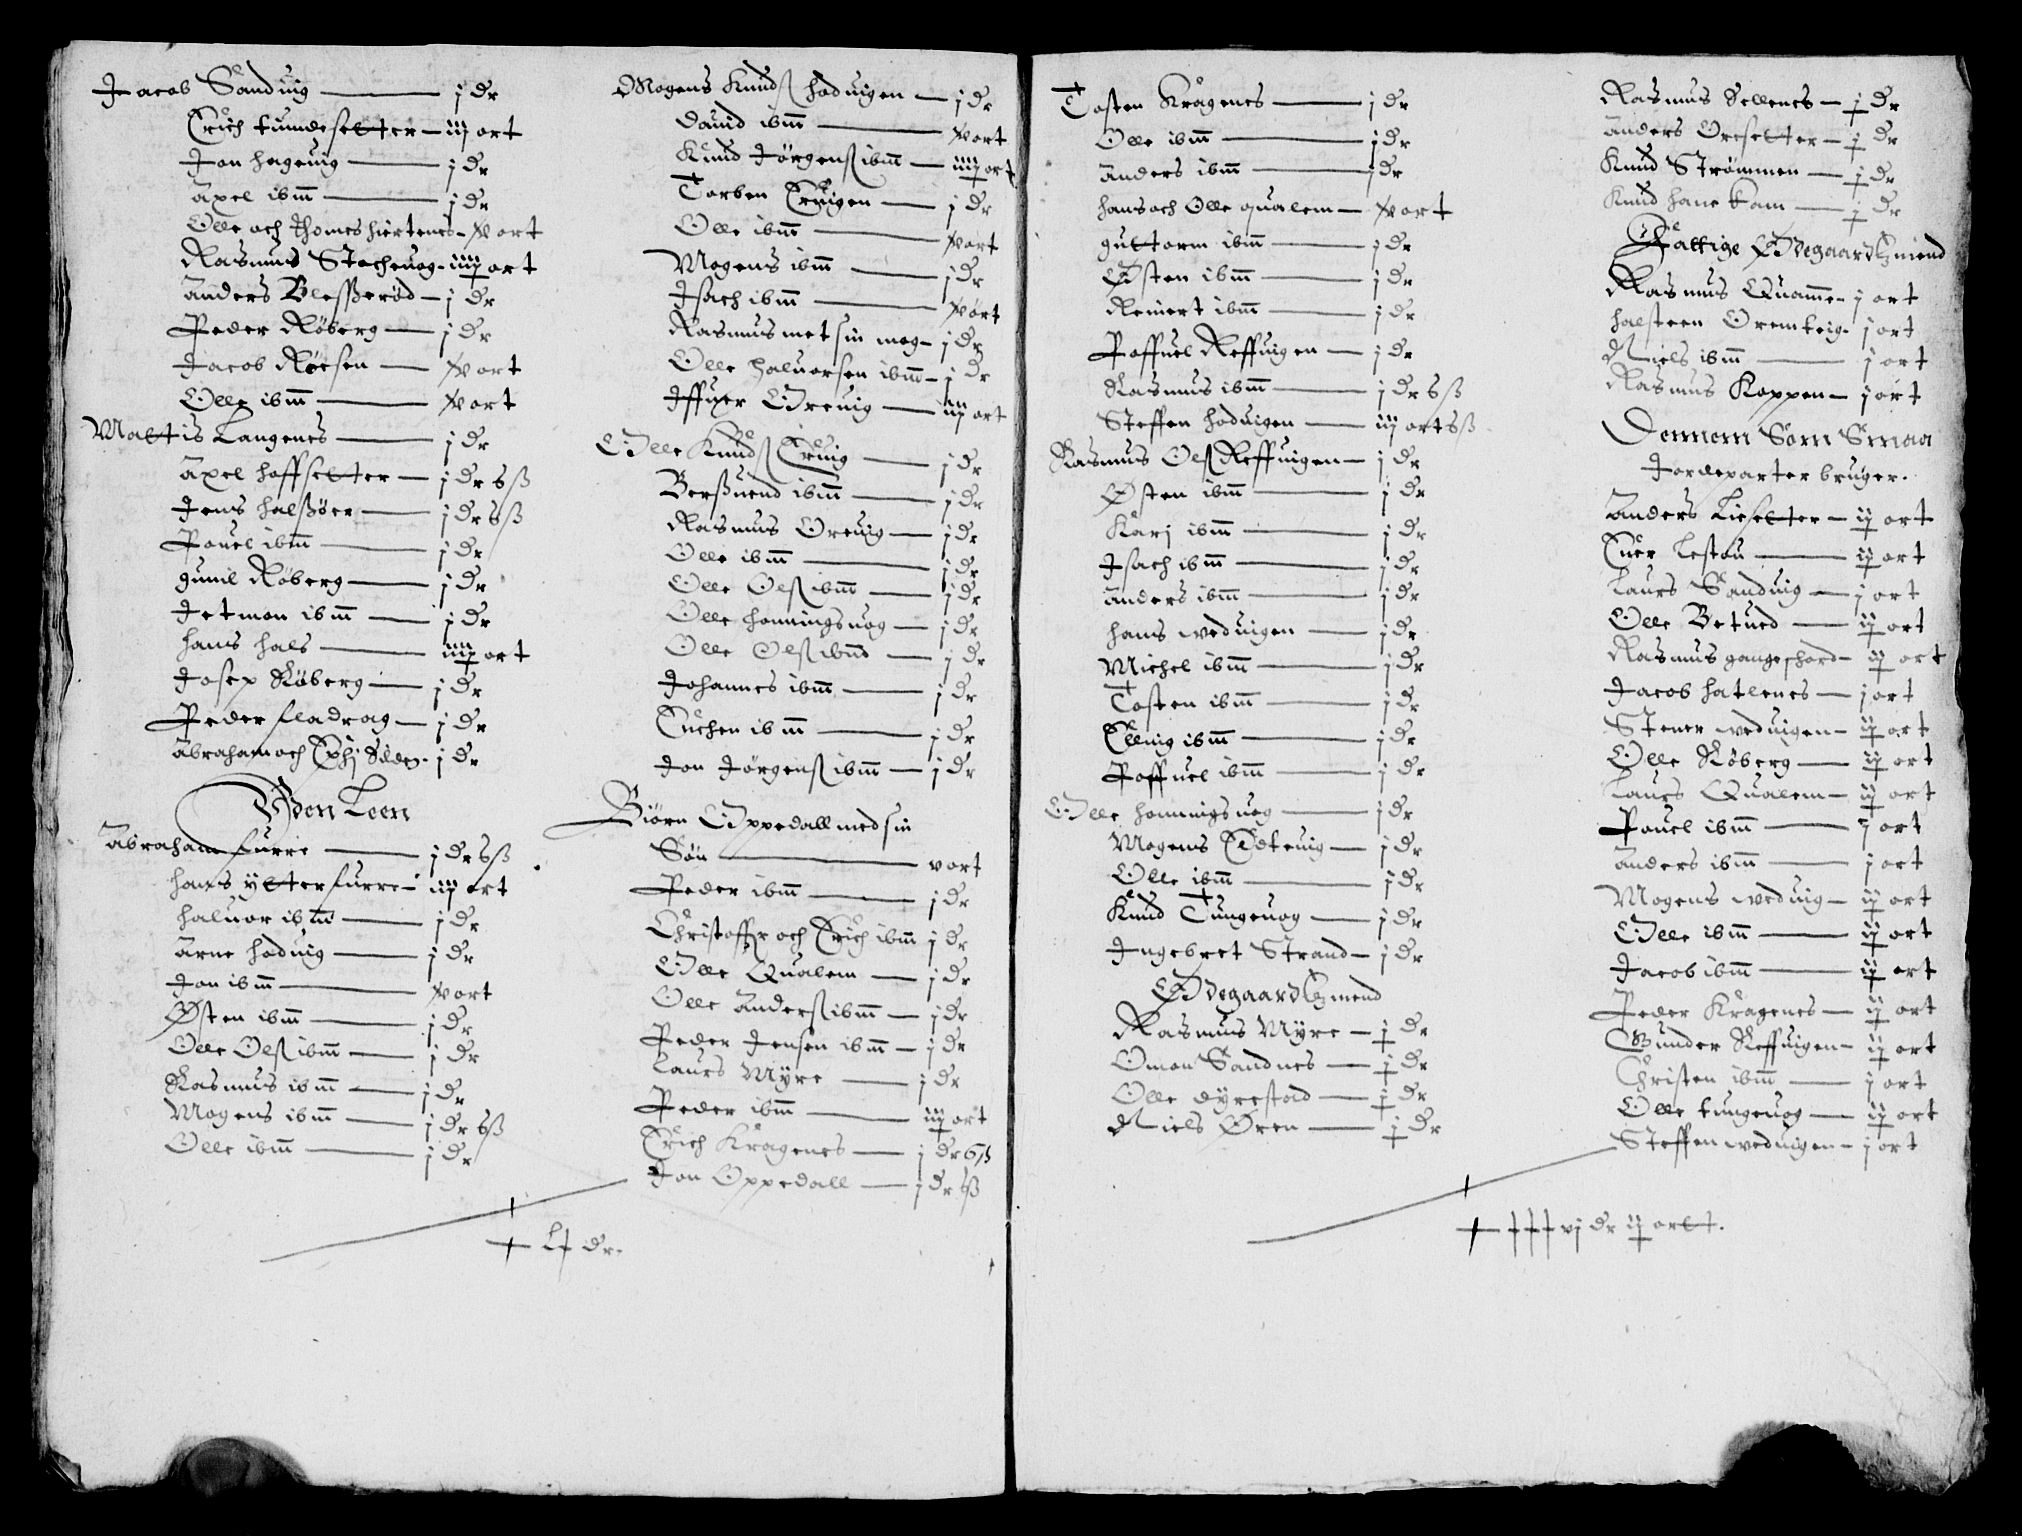 Jacob Sanduig — j dr
Erich tundesetter — iij ort
Jon hageuig — j dr
Axel ibm — j dr
Olle och Thomes hiertenes — v ort
Rasmus Stocheuog — iiij ort
Anders Blessserød — j dr
Peder Røberg — j dr
Jacob Røesen — v ort
Olle ibm — v ort
Mattis Langenes — j dr
Axel hoffsetter — j dr 6 ß
Jens halsøer — j dr 6 ß
Pouel ibm — j dr
gunil Røberg — j dr
Jetmon ibm — j dr
hans hals — iiij ort
Josep Røberg — j dr
Peder fladrag — j dr
Abraham och silden — j dr
Leen
Abraham furre — j dr 6 ß
hans ytterfurre — iij ort
haluor ibm — j dr
Arne hoduig — j dr
Jon ibm — v ort
Østen ibm — j dr
Olle Olß ibm — j dr
Rasmus ibm — j dr
Mogens ibm — j dr 6 ß
Olle ibm — j dr
Mogens Knudß hoduigen — j dr
Dauid ibm — v ort
Knud Jørgenß ibm — iiij ort
Torben Eruigen — j dr
Olle ibm — v ort
Mogens ibm — j dr
Isach ibm — v ort
Rasmus met sin mog — j dr
Olle haluorsen ibm — j dr
Iffuer Oreuig — iij ort
Olle Knudß Eruig — j dr
Berßuend ibm — j dr
Rasmus Oreuig — j dr
Olle ibm — j dr
Olle Olß ibm — j dr
Olle honningsuog — j dr
Olle Olß ibm — j dr
Johannes ibm — j dr
ibm — j dr
Jon Jørgenß ibm — j dr
Biørn Oppedall med sin
Søn — v ort
Peder ibm — j dr
Christoffer och Erich ibm j dr
Olle Qualem — j dr
Olle Anderß ibm — j dr
Peder Jensen ibm — j dr
Laurs Myre — j dr
Peder ibm — iij ort
Erich Kragenes — j dr 6 ß
Jon Oppedall — j dr 6 ß
dr.
Tosten Kragenes — j dr
Olle ibm — j dr
Anders ibm — j dr
hans och Olle qualem — v ort
guttorm ibm — j dr
Østen ibm — j dr
Reinert ibm — j dr
Poffuel Reffuigen — j dr
Rasmus ibm — j dr 6 ß
Steffen hoduigen — iij ort 6 ß
Rasmus Olß Reffuigen — j dr
Østen ibm — j dr
Karj ibm — j dr
Isach ibm — j dr
Anders ibm — j dr
hans weduigen — j dr
Michel ibm — j dr
Tosten ibm — j dr
Elluig ibm — j dr
Poffuel ibm — j dr
Olle honningsuog — j dr
Mogens — j dr
Olle ibm — j dr
Knud Tungeuog — j dr
Ingebret Strand — j dr
Ødegaardtzmend
Rasmus Myre — j dr
Omon Sandnes — j dr
Olle dyrestad — j dr
Niels Øren — j dr
Rasmus Sellenes — j dr
Anders Oresetter — j dr
Knud Strømmen — j dr
Knud hane kam — j dr
Fattige Ødegaardtzmend
Rasmus Quamme — j ort
halsteen Oremteig — j ort
Niels ibm — j ort
Rasmus Koppen — j ort
Dennem Som Smaa
Jordeparter bruger.
Anders Liesetter — ij ort
Euer Lestøu — ij ort
Laurs Sanduig — j ort
Olle Betued — ij ort
Rasmus gangeschord — ij ort
Jacob hatlenes — j ort
Stener weduigen — ij ort
Olle Røberg — ij ort
Laurs Qualem — ij ort
Pouel ibm — j ort
Anders ibm — j ort
Mogens weduig — ij ort
Olle ibm — ij ort
Jacob ibm — ij ort
Peder Kragenes — ij ort
Gunder Reffuigen — ij ort
Christen ibm — j ort
Olle tungeuog — ij ort
Steffen weduigen — j ort
vj dr ij ortt.